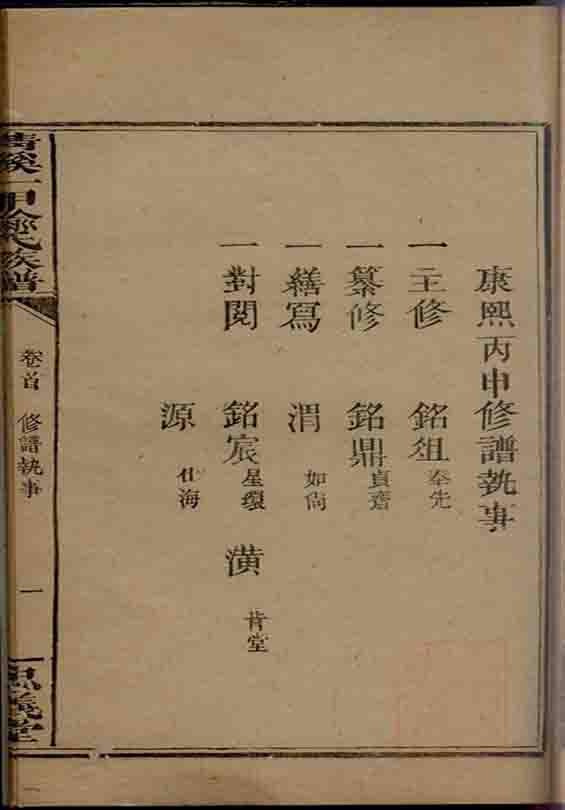 康熙丙申修譜執事
一主修 銘俎 奉先
一纂修 銘鼎 貞齋
一繕寫 渭 如尚
一對閱 銘宸 星環 潢 肯堂
源 仕海
族譜
卷首 修譜執事 一
思義堂